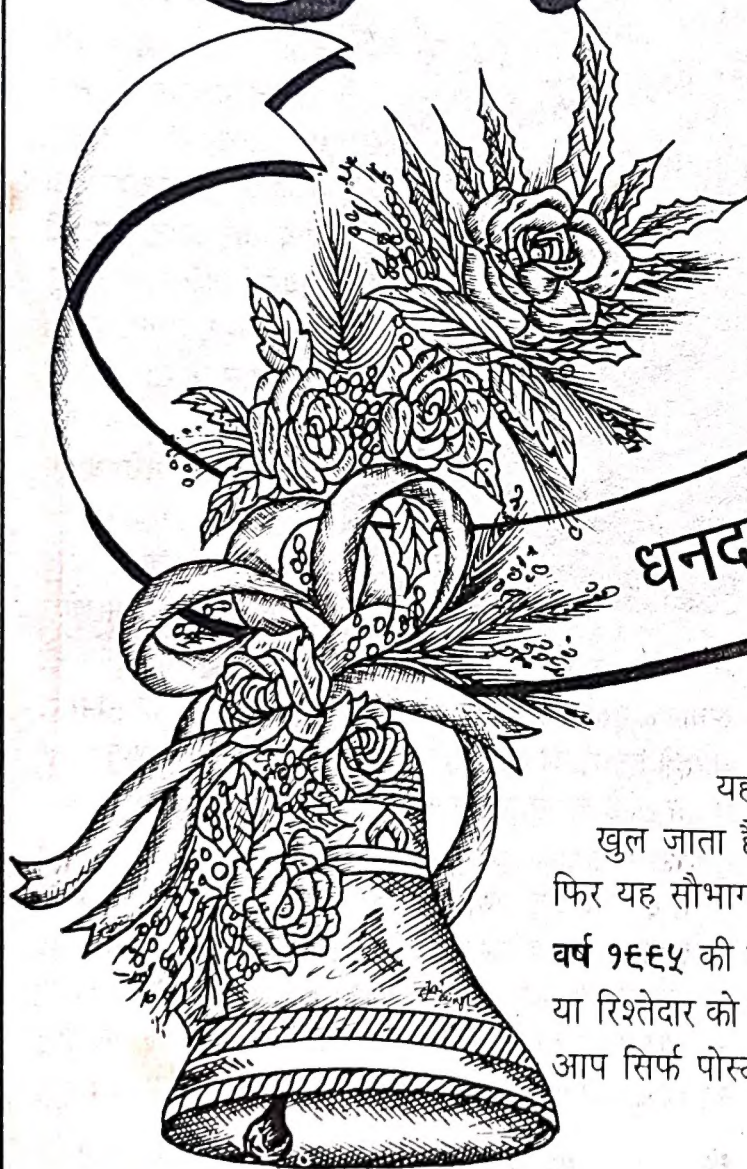 धनद
यह
खुल जाता है
फिर यह सौभाग
वर्ष १९९५ की
या रिश्तेदार को
आप सिर्फ पोस्ट